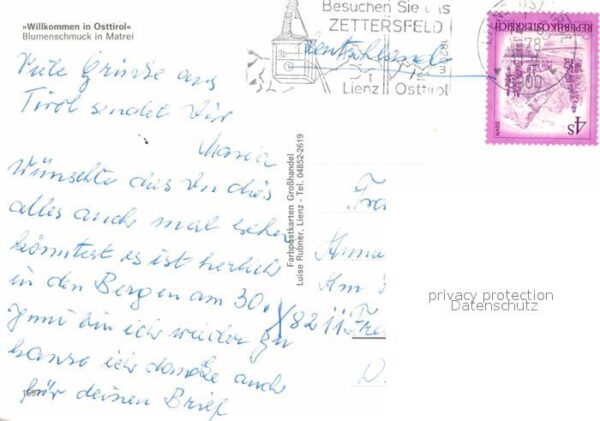 »Willkommen in Osttirol«
Blumenschmuck in Matrei
Viele Grüsse aus
Tirol sendet Dir
Maria
wünschte das du dies
alles auch mal sehen
könntest es ist herlich
in den Bergen am 30.
Juni bin ich wieder zu
hause ich danke auch
für deinen Brief
Farbpostkarten Großhandel
Luise Rubner, Lienz - Tel. 04852-2619
Besuchen Sie das
ZETTERSFELD
Lienz Osttirol
Deutschland
REPUBLIK ÖSTERREICH
4S
Anna
Am
8211
privacy protection
Datenschutz